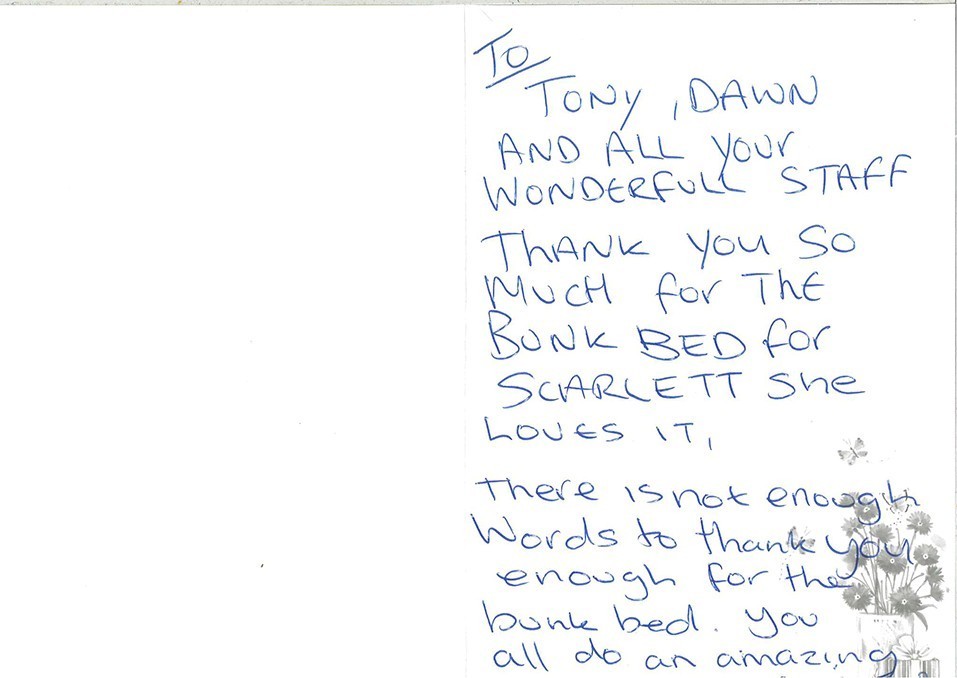 To
TONY, DAWN
AND ALL YOUr
WONDERFULL STAFF
THANK YOU SO
MUCH for THE
BUNK BED for
SCARLETT She
LOVES IT,
There is not enough
Words to thank you
enough for the
bunk bed. you
all do an amazing